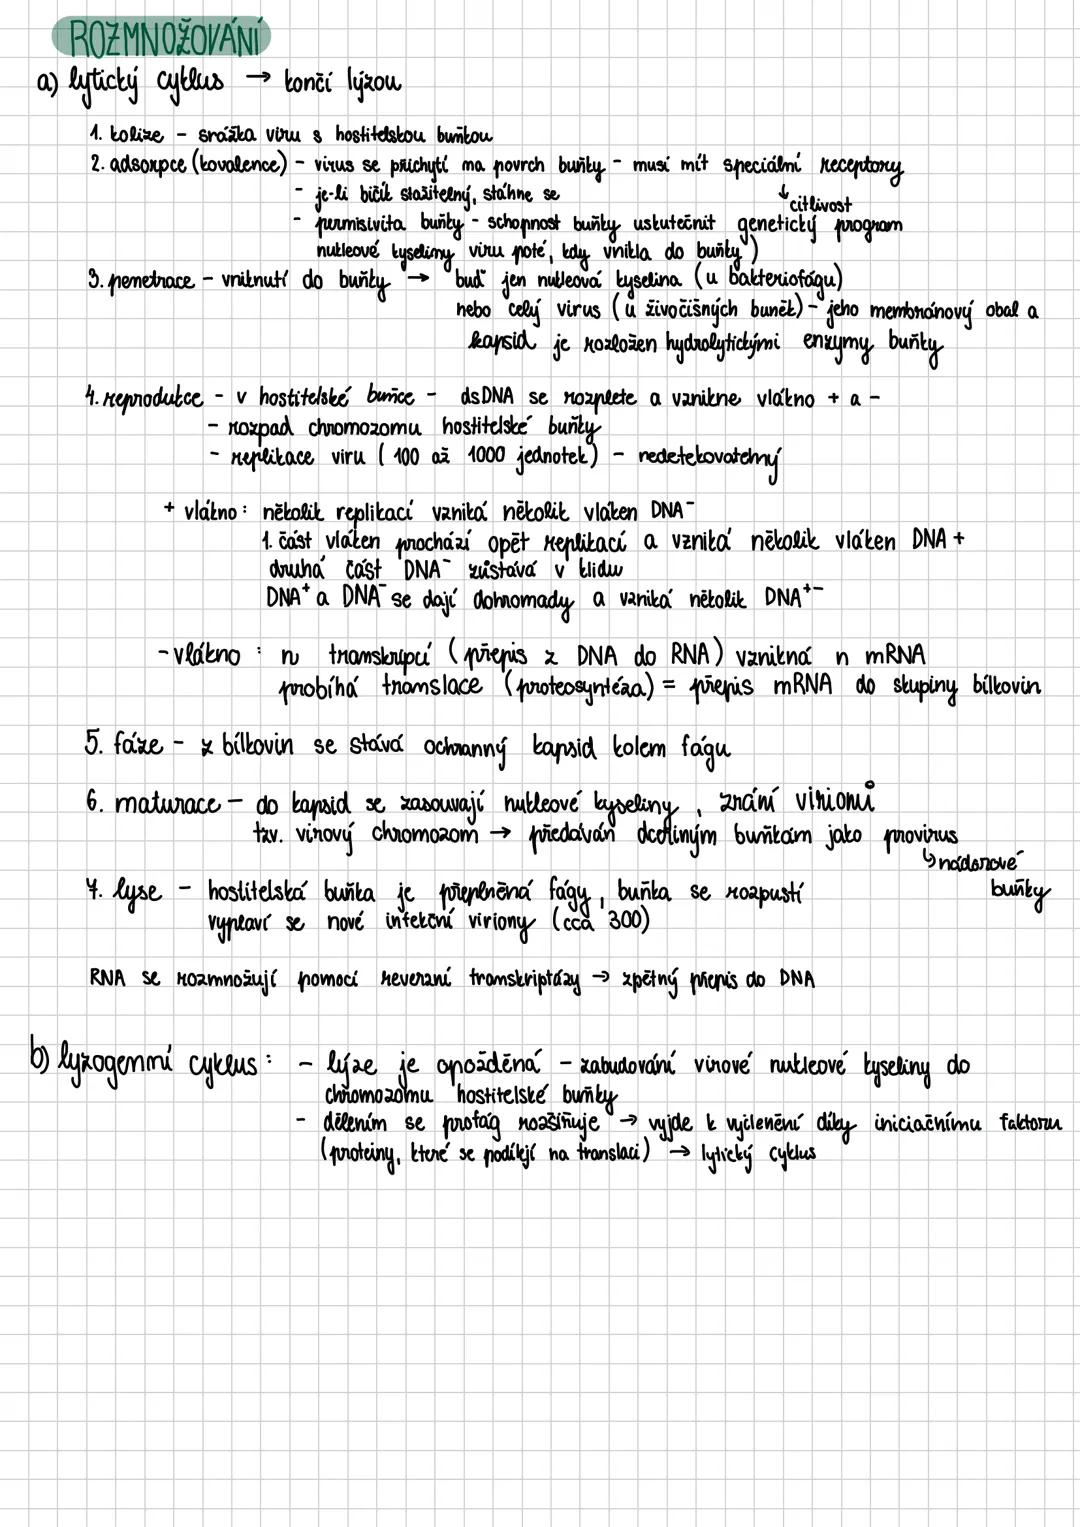 ROZMNOŽOVÁNÍ
a) lytický cyklus → končí lýzou
1. kolize - srážka viru s hostitelskou buňkou
2. adsorpce (kovalence) - virus se přichytí na povrch buňky - musí mít speciální receptory
↓ citlivost
- je-li bičík stažitelný, stáhne se
- permisivita buňky - schopnost buňky uskutečnit genetický program
nukleové kyseliny viru poté, kdy vnikla do buňky)
3. penetrace - vniknutí do buňky → buď jen nukleová kyselina (u bakteriofágu)
nebo celý virus (u živočišných buněk) - jeho membránový obal a
kapsid je rozložen hydrolytickými enzymy buňky
4. reprodukce - v hostitelské buňce - dsDNA se rozplete a vznikne vlákno + a -
- rozpad chromozomu hostitelské buňky
- replikace viru (100 až 1000 jednotek) - nedetekovatelný
+ vlákno: několik replikací vzniká několik vláken DNA⁻
1. část vláken prochází opět replikací a vzniká několik vláken DNA +
druhá část DNA⁻ zůstává v klidu
DNA⁺ a DNA⁻ se dají dohromady a vzniká několik DNA⁺⁻
- vlákno: n transkripcí (přepis z DNA do RNA) vznikná n mRNA
probíhá translace (proteosyntéza) = přepis mRNA do skupiny bílkovin
5. fáze - z bílkovin se stává ochranný kapsid kolem fágu
6. maturace - do kapsid se zasouvají nukleové kyseliny, zrání virionů
tzv. virový chromozom → předáván dceřiným buňkám jako provirus
↳ nádorové
buňky
7. lyse - hostitelská buňka je přeplněná fágy, buňka se rozpustí
vyplaví se nové infekční viriony (cca 300)
RNA se rozmnožují pomocí reverzní transkriptázy → zpětný přepis do DNA
b) lyzogenní cyklus: - lýze je opožděná - zabudování virové nukleové kyseliny do
chromozomu hostitelské buňky
- dělením se profág rozšiřuje → vyjde k vyčlenění díky iniciačnímu faktoru
(proteiny, které se podílejí na translaci) → lytický cyklus